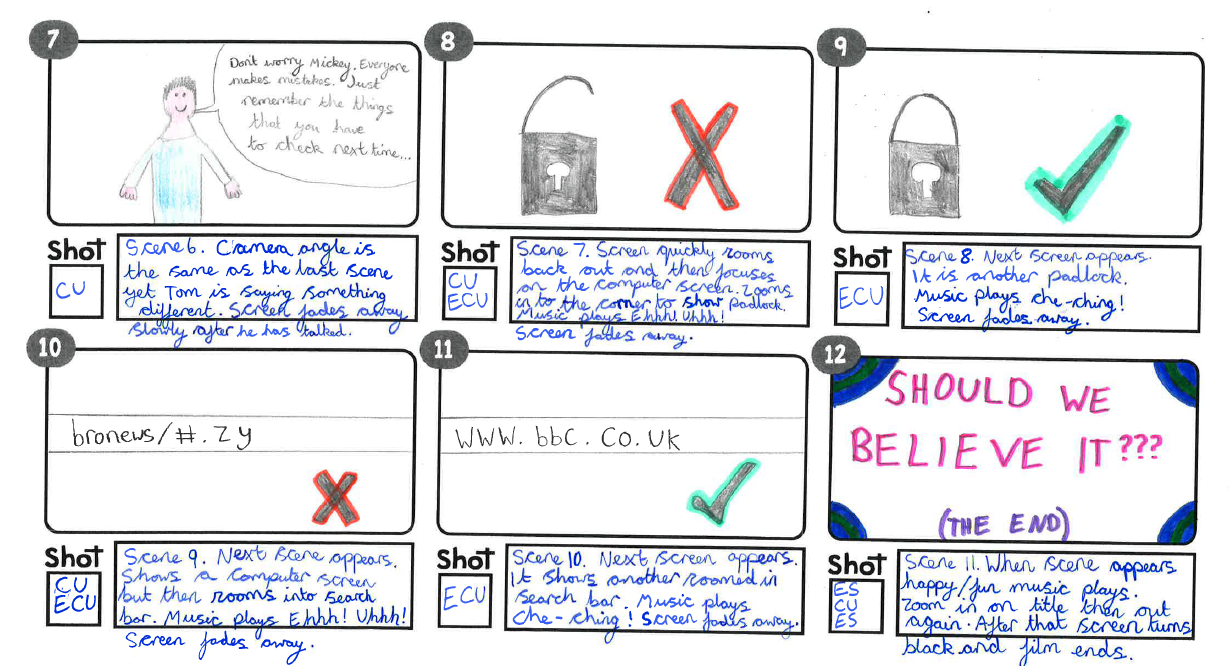 7
Don't worry Mickey. Everyone
makes mistakes. Just
remember the things
that you have
to check next time...
Shot
CU
Scene 6. Camera angle is
the same as the last scene
yet Tom is saying something
different. Screen fades away
slowly after he has talked.
8
Shot
CU
ECU
Scene 7. Screen quickly zooms
back out and then focuses
on the computer screen. Zooms
in to the corner to show padlock.
Music plays Ehhh! Uhhh!
Screen fades away.
9
Shot
ECU
Scene 8. Next screen appears.
It is another padlock.
Music plays che-ching!
Screen fades away.
10
bronews/#.zy
Shot
CU
ECU
Scene 9. Next scene appears.
Shows a computer screen
but then zooms into search
bar. Music plays Ehhh! Uhhh!
Screen fades away.
11
www.bbc.co.uk
Shot
ECU
Scene 10. Next screen appears.
It shows another zoomed in
search bar. Music plays
che-ching! Screen fades away.
12
SHOULD WE
BELIEVE IT???
(THE END)
Shot
ES
CU
ES
Scene 11. When scene appears
happy/fun music plays.
Zoom in on title then out
again. After that screen turns
black and film ends.